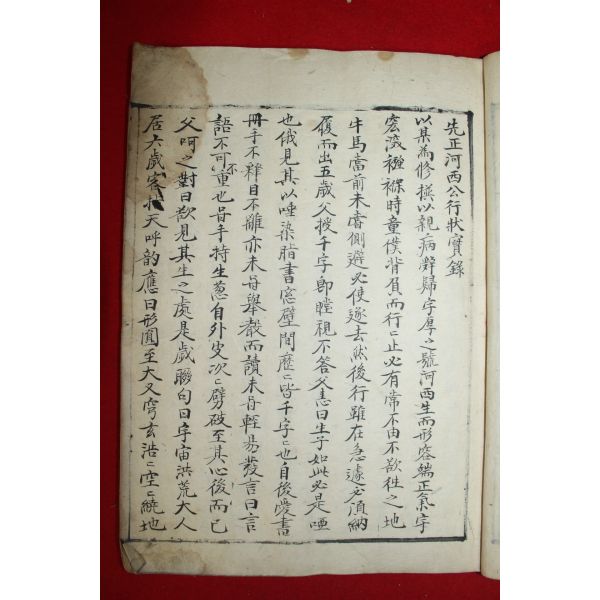 先正河西公行狀實錄
以某為修撰以親病辭歸字厚之號河西生而形容端正氣宇
宏深襁褓時童僕背負而行行止必有常不由不欲徃之地
牛馬當前未嘗側避必使逐去然後行雖在急遽必須納
履而出五歲父授千字卽瞠視不答父恚曰生子如此必是啞
也俄見其以唾染脂書窓壁間歷歷皆千字字也自後愛書
冊手不釋目不離亦未嘗舉聲而讀未嘗輕易發言曰言
語不可重也嘗手持生葱自外皮次次劈破至其心後而已
父呵之對曰欲見其生之處是歲聯句曰宇宙洪荒大人
居六歲客指天呼韵應曰形圓至大又穹玄浩浩空空繞地